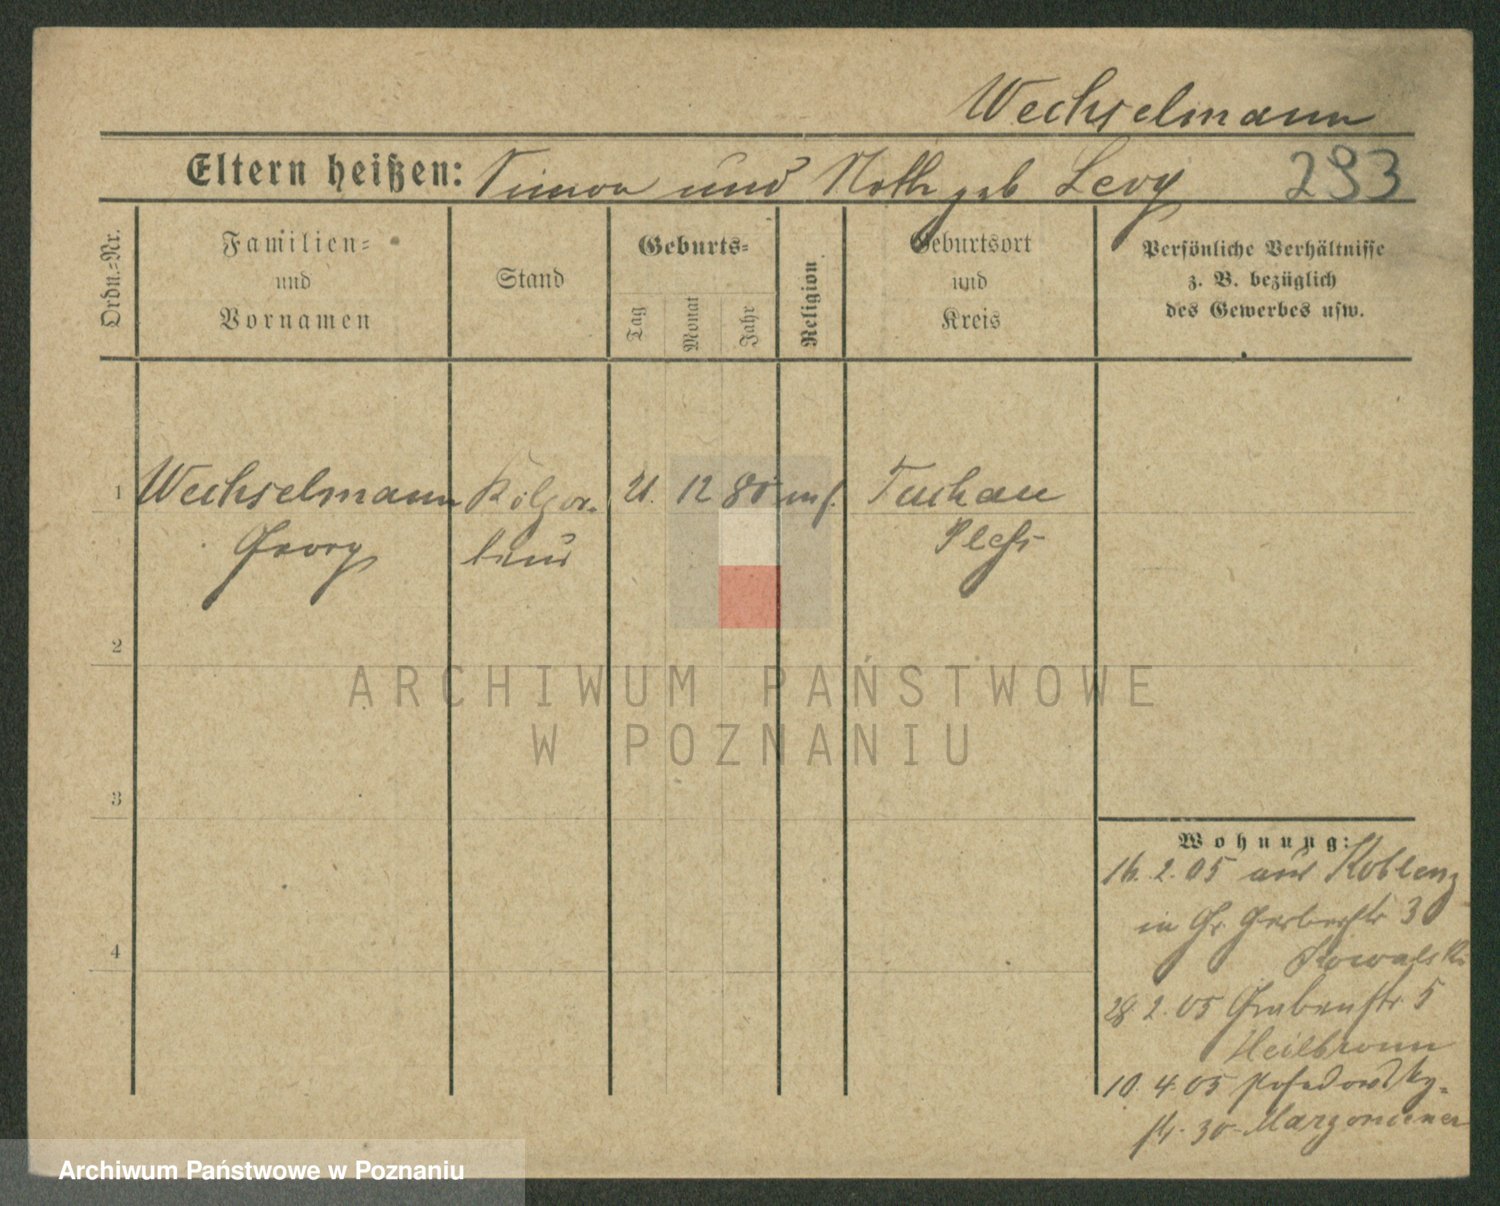 Wechselmann
Eltern heißen: Simon und Noth geb Levy 293
Ordn.=Nr.
Familien=
und
Vornamen
Stand
Geburts=
Tag
Monat
Jahr
Religion
Geburtsort
und
Kreis
Persönliche Verhältnisse
z. B. bezüglich
des Gewerbes usw.
1 Wechselmann 21. 12 80 mos. Tichau
Georg Pleß
2
3
4
Wohnung:
16. 2. 05 aus Koblenz
in Gr. Gerberstr 30
Kowalski
28 2. 05 Grabenstr 5
Heilbronn
10. 4. 05 Posadowsky-
str. 30
ARCHIWUM PAŃSTWOWE
W POZNANIU
Archiwum Państwowe w Poznaniu